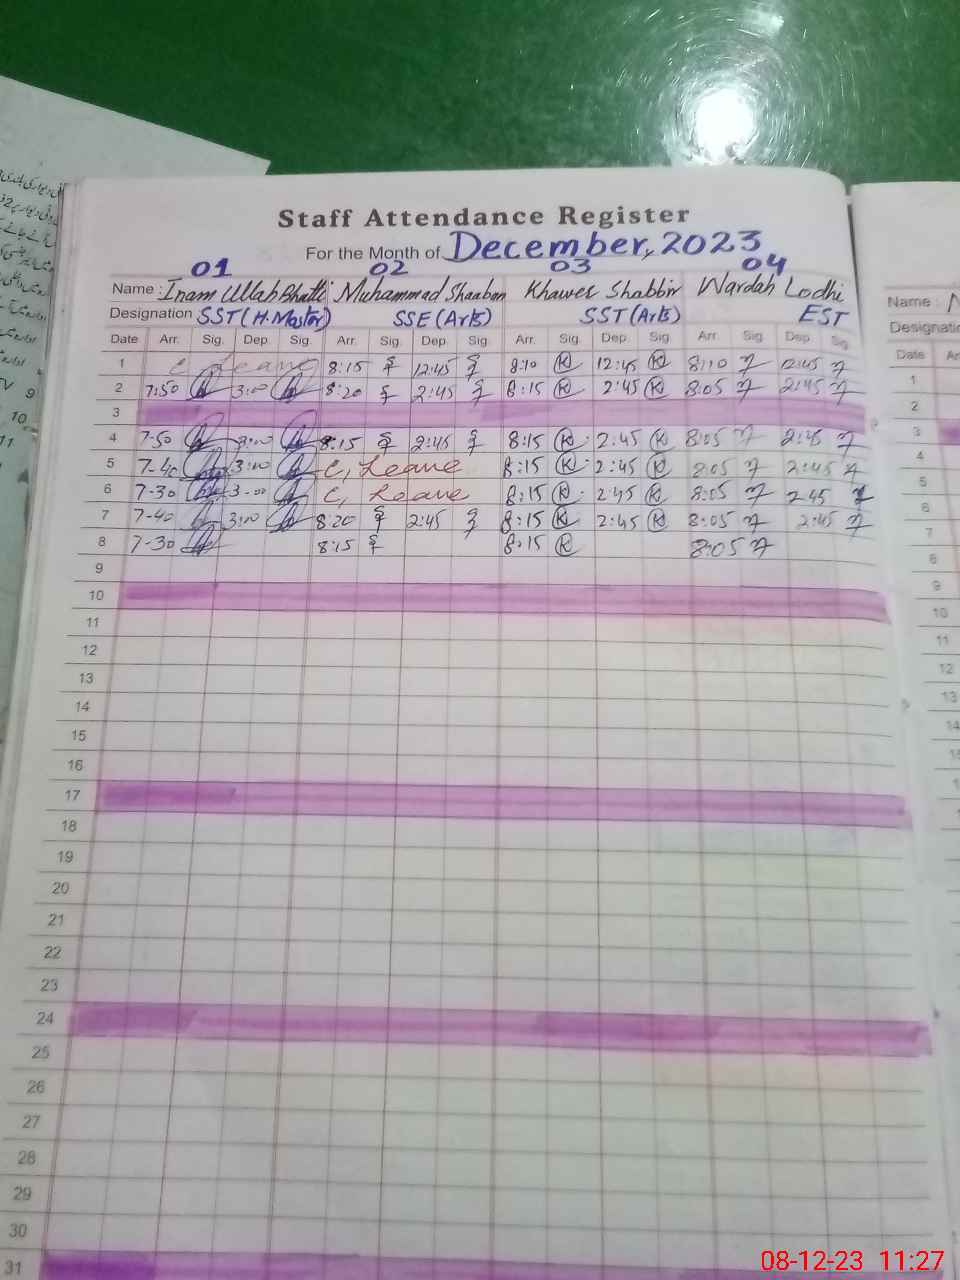 Staff Attendance Register
For the Month of December, 2023
01 02 03 04
Name : Inam Ullah Bhatti Muhammad Shaaban Khawer Shabbir Wardah Lodhi
Designation SST (H.Master) SSE (Arts) SST (Arts) EST
Date Arr. Sig. Dep. Sig. Arr. Sig. Dep. Sig. Arr. Sig. Dep. Sig. Arr. Sig. Dep. Sig.
1 C Leave 8:15 12:45 8:10 K 12:45 K 8:10 12:45
2 7:50 3:00 8:20 2:45 8:15 K 2:45 K 8:05 2:45
3
4 7-50 3:00 8:15 2:45 8:15 K 2:45 K 8:05 2:45
5 7-40 3:00 C, Leave 8:15 K 2:45 K 8:05 2:45
6 7-30 3-00 C, Leave 8:15 K 2:45 K 8:05 2:45
7 7-40 3:00 8:20 2:45 8:15 K 2:45 K 8:05 2:45
8 7-30 8:15 8:15 K 8:05
9
10
11
12
13
14
15
16
17
18
19
20
21
22
23
24
25
26
27
28
29
30
31
Name :
Date
1
2
3
4
5
6
7
8
9
10
11
12
13
TV 9
10
11
08-12-23 11:27